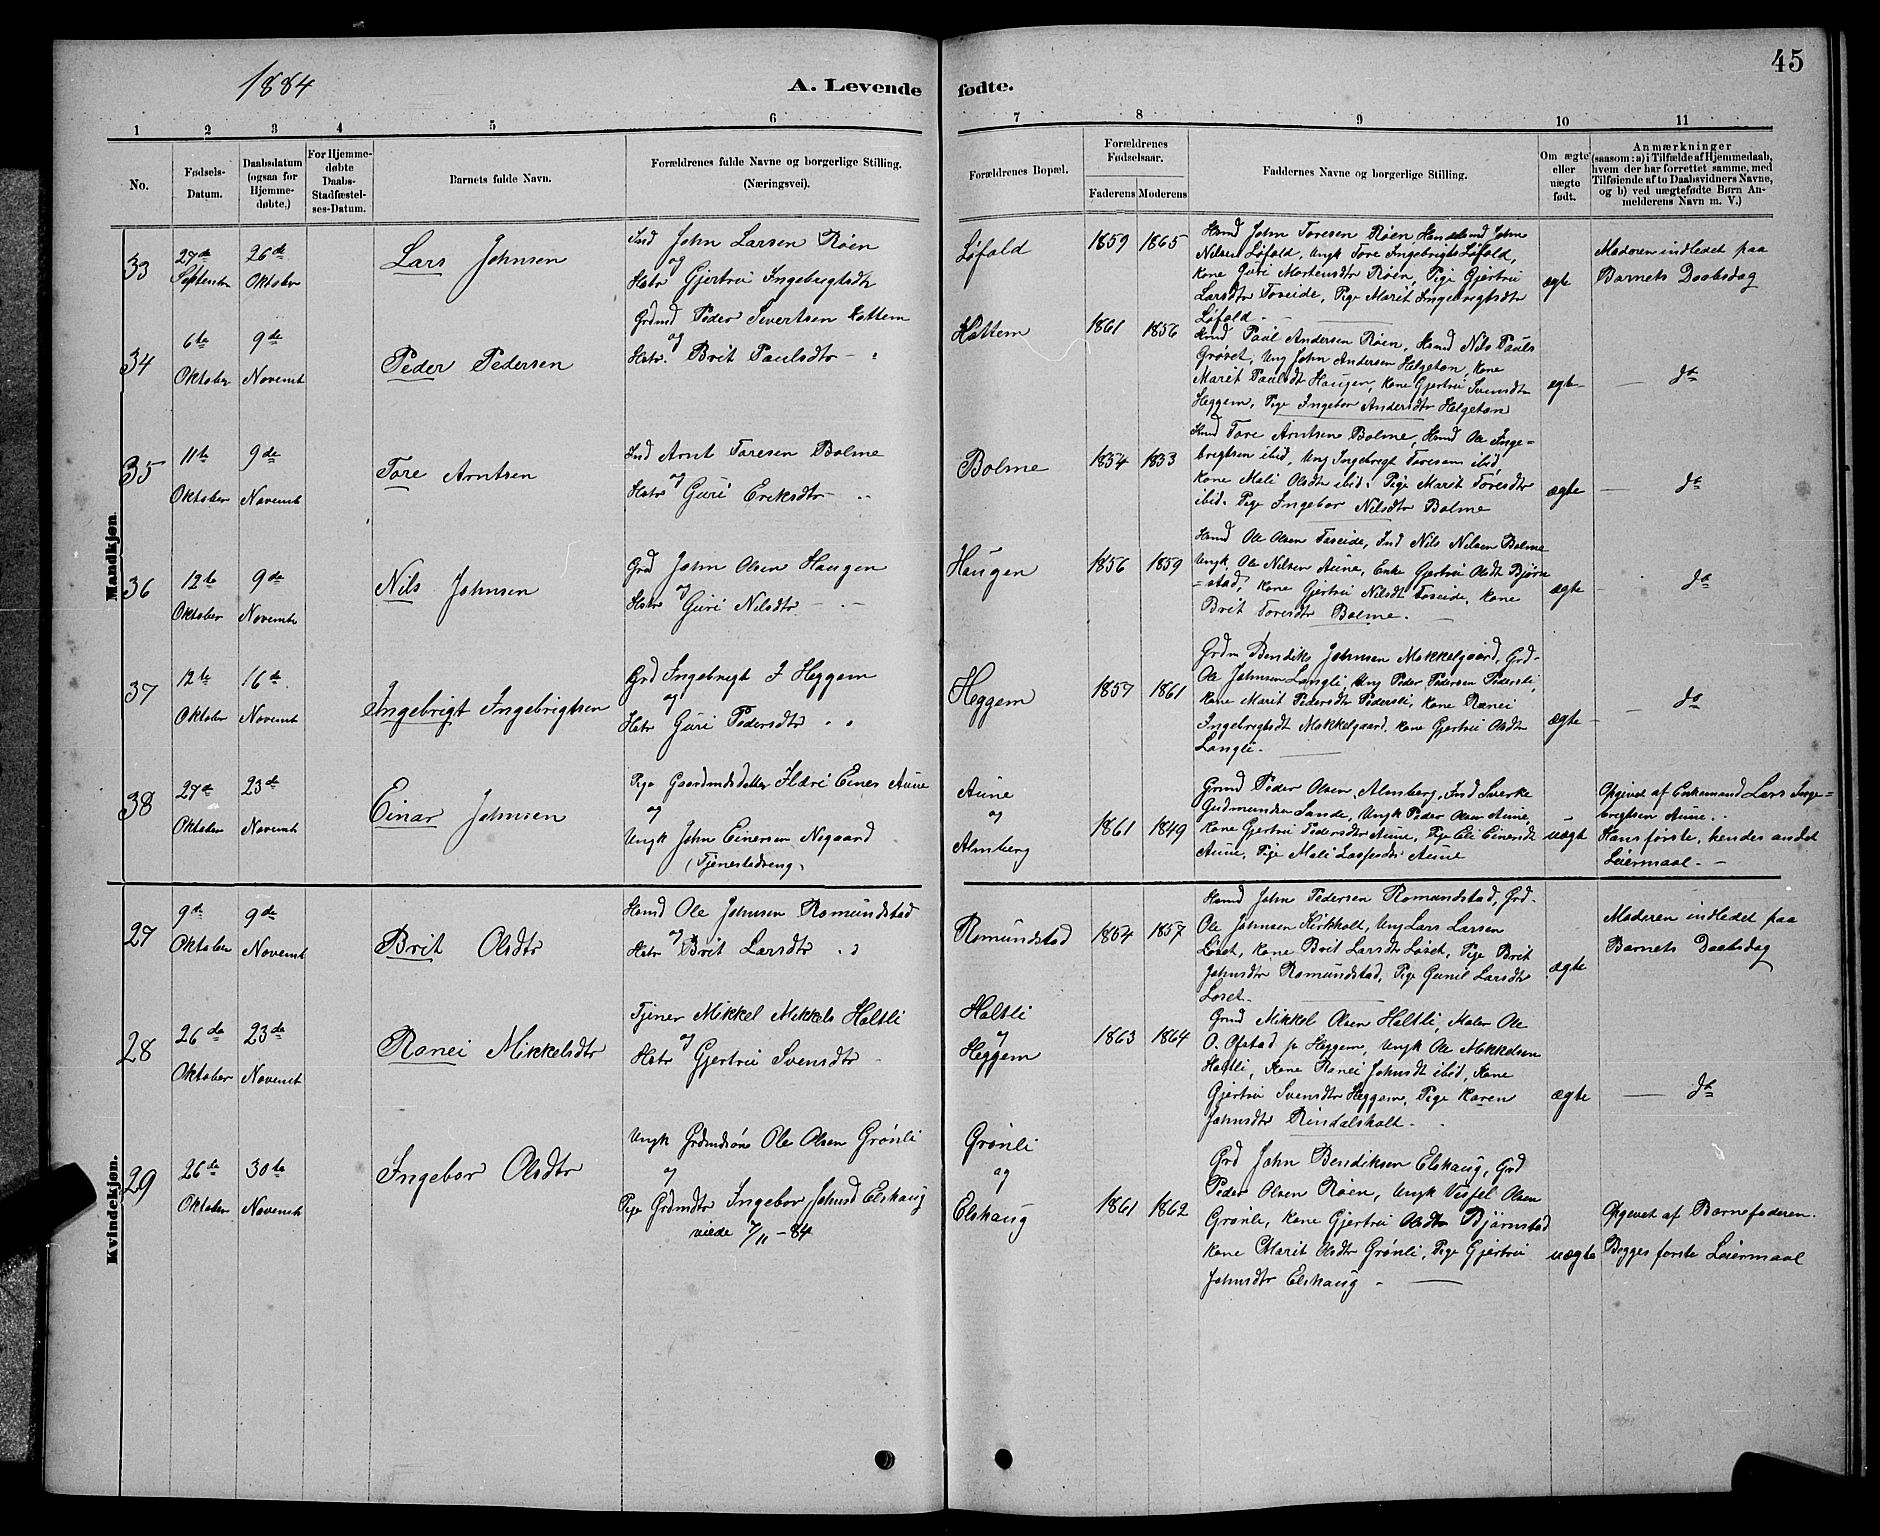 1884
A. Levende
fødte.
45
1 2 3 4 5 6 7 8 9 10 11
No.
Fødsels-
Datum.
Daabsdatum
(ogsaa for
Hjemme-
døbte.)
For Hjemme-
døbte
Daabs-
Stadfæstel-
ses-Datum.
Barnets fulde Navn.
Forældrenes fulde Navne og borgerlige Stilling.
(Næringsvei).
Forældrenes Bopæl.
Forældrenes
Fødselsaar.
Faderens Moderens
Faddernes Navne og borgerlige Stilling.
Om ægte
eller
uægte
født.
Anmærkninger
(saasom: a) i Tilfælde af Hjemmedaab,
hvem der har forrettet samme, med
Tilføiende af to Daabsvidners Navne,
og b) ved uægtefødte Børn An-
melderens Navn m. V.)
Mandkjøn.
33
27de
Septembr
26de
Oktober
Lars Johnsen
Ind John Larsen Røen
og
Hstr Gjertru Ingebrigtsdtr
Løfald
1859 1865
Hmd John Toresen Røen
Nilsen Løfald, Ungk Tore Ingebrigts Løfald,
Kone Guri Mortensdtr Røen, Pige Gjertru
Larsdtr Toreide, Pige Marit Ingebrigtsdtr
Løfald.
ægte
Moderen indledet paa
Barnets Daabsdag
34
6te
Oktober
9de
Novemb
Peder Pedersen
Grdmd Peder Sivertsen Hattem
og
Hstr. Brit Paulsdtr — "
Hattem
1861 1856
Hmd Paal Andersen Røen, Hmd Nils Pauls
Grøset, Ung John Andersen Helgeton, Kone
Marit Paulsdt Haugen, Kone Gjertru Svensdtr
Heggem, Pige Ingebor Andersdtr Helgeton
ægte
— do
35
11te
Oktober
9de
Novemb
Tore Arntsen
Ind Arnt Toresen Bolme
og
Hstr Guri Eriksdtr — "
Bolme
1854 1853
Hmd Tore Arntsen Bolme, Hmd Ole Inge-
brigtsen ibid, Ung Ingebrigt Toresen ibid,
Kone Mali Olsdt ibid. Pige Marit Toresdtr
ibid. Pige Ingebor Nilsdtr Bolme
ægte
— do
36
12te
Oktober
9de
Novemb
Nils Johnsen
Grd John Olsen Haugen
og
Hstr Guri Nilsdtr — " —
Haugen
1856 1859
Hmd Ole Olsen Toreide, Ind Nils Nilsen Bolme
Ungk. Ole Nilsen Aune, Enke Gjertru Olsdt Bjørn
-stad, Kone Gjertru Nilsdt Toreide, Kone
Brit Toresdtr Bolme.
ægte
do
37
12te
Oktober
16de
Novemb
Ingebrigt Ingebrigtsen
Grd Ingebrigt I Heggem
og
Hstr Guri Pedersdtr " "
Heggem
1857 1861
Grdm Bendiks Johnsen Mokkelgaard, Grd-
Ole Johnsen Langli, Ung Peder Pedersen Pedersli,
Kone Marit Pedersdtr Pedersli, Kone Ranei
Ingebrigtsdt Mokkelgaard, Kone Gjertru Olsdtr
Langli.
ægte
— do
38
27de
Oktober
23de
Novemb
Einar Johnsen
Pige Gaardmdsdatter Ildri Eines Aune
og
Ungk John Einersen Nigaard
(Tjenestedreng)
Aune
og
Almberg
1861 1849
Grmd Peder Olsen Almberg, Ind Sverke
Gudmundsen Sande, Ungk Peder Olsen Aune,
Kone Gjertru Pedersdtr Aune, Pige Eli Einersdt
Aune, Pige Mali Larsesdtr Aune
uægte
Opgivet af Enkemand Lars Inge-
brigtsen Aune.
Hans første, hendes andet
Leiermaal. —
Kvindekjøn.
27
9de
Oktober
9de
Novemb
Brit Olsdtr
Hmd Ole Johnsen Romundstad
og
Hstr Brit Larsdtr " "
Romundstad
1854 1857
Hmd John Pedersen Romundstad, Grd-
Ole Johnsen Kirkholt, Ung Lars Larsen
Løset, Kone Brit Larsdtr Løset, Pige Brit
Johnsdtr Romundstad, Pige Gunil Larsdtr
Løset.
ægte
Moderen indledet paa
Barnets Daabsdag
28
26de
Oktober
23de
Novemb
Ranei Mikkelsdtr
Tjener Mikkel Mikkels Haltli
og
Hstr Gjertru Svensdtr
Haltli
og
Heggem
1863 1864
Grmd Mikkel Olsen Haltli, Maler Ole
O. Ofstad p Heggem, Ungk Ole Mikkelsen
Haltli, Kone Ranei Johnsdt ibid, Kone
Gjertru Svensdtr Heggem, Pige Karen
Johnsdtr Rindalsholt.
ægte
— do
29
26de
Oktober
30te
Novemb
Ingebor Olsdtr
Ungk Grdmdsøn Ole Olsen Grønli
og
Pige Grdmdtr Ingebor Johnsd Elshaug
viede 7/11-84
Grønli
og
Elshaug
1861 1862
Grd John Bendiksen Elshaug, Grd
Peder Olsen Røen, Ungk Olsen
Grønli, Kone Gjertru Olsdtr Bjørnstad
Kone Marit Olsdtr Grønli, Pige Gjertru
Johnsdtr Elshaug —
uægte
Opgivet af Barnefaderen.
Begges første Leiermaal